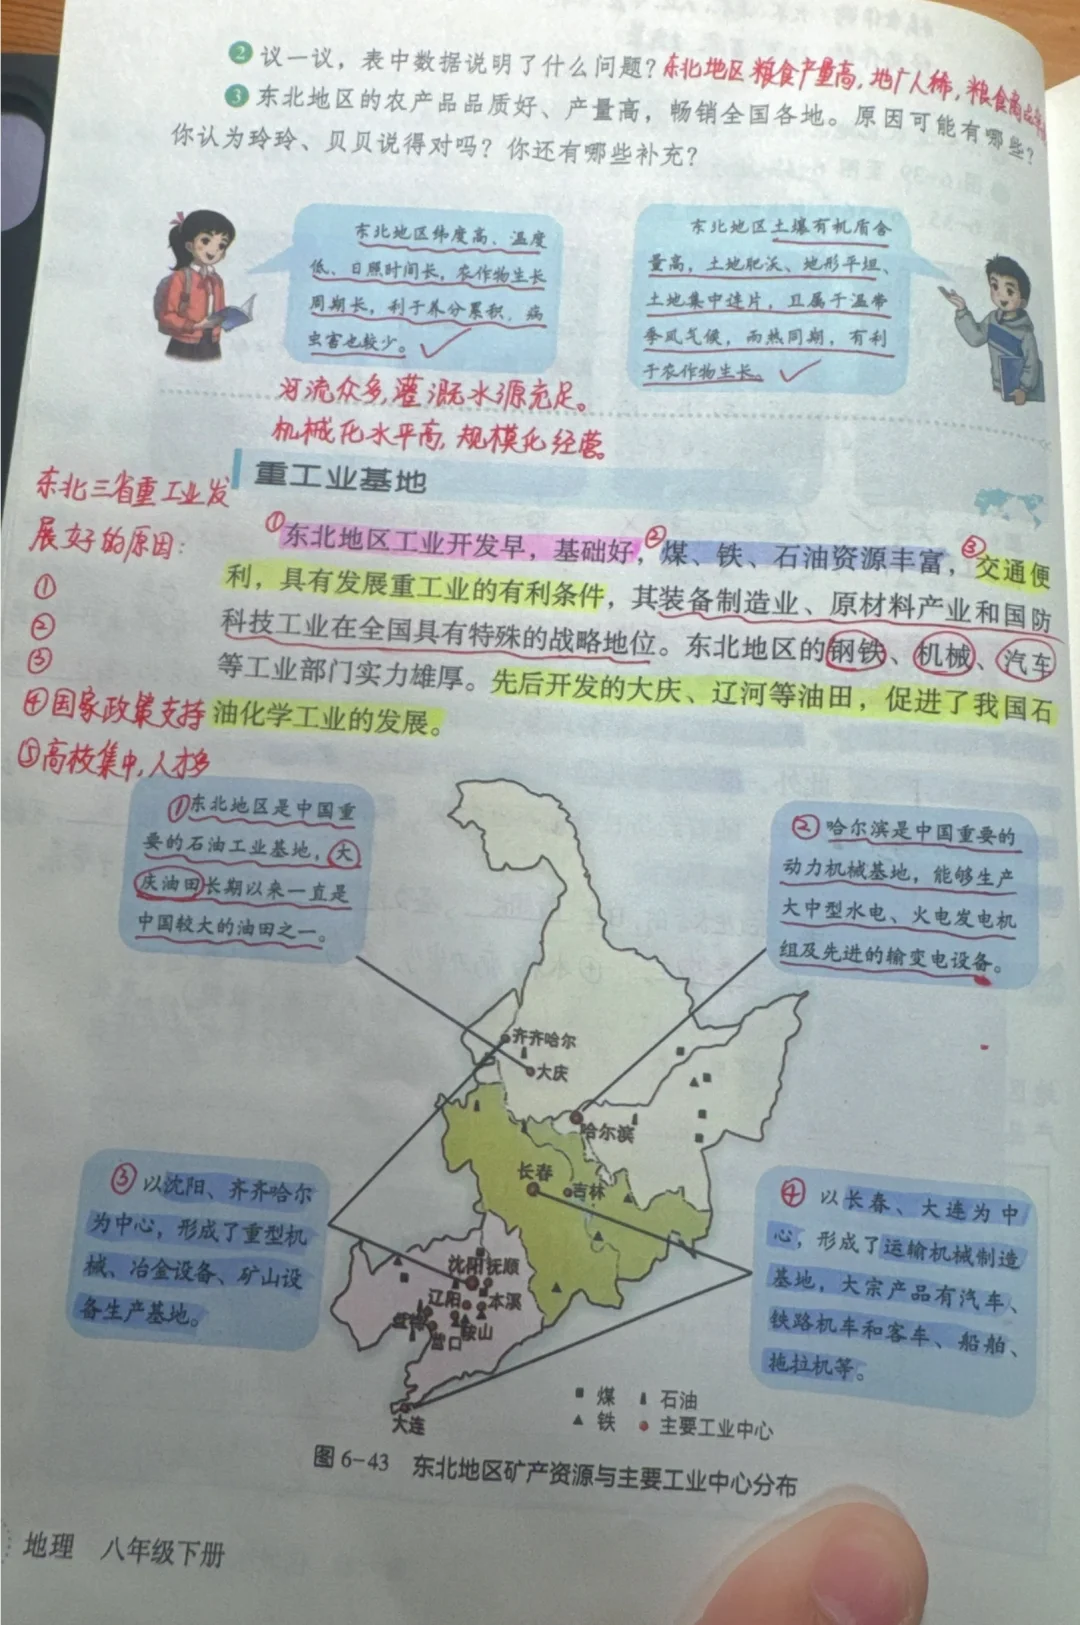 ❷ 议一议，表中数据说明了什么问题？东北地区粮食产量高，地广人稀，粮食商品率
❸ 东北地区的农产品品质好、产量高，畅销全国各地。原因可能有哪些？
你认为玲玲、贝贝说得对吗？你还有哪些补充？
东北地区纬度高、温度
低、日照时间长，农作物生长
周期长，利于养分累积，病
虫害也较少。
东北地区土壤有机质含
量高，土地肥沃、地形平坦、
土地集中连片，且属于温带
季风气候，雨热同期，有利
于农作物生长。
河流众多，灌溉水源充足。
机械化水平高，规模化经营。
重工业基地
东北三省重工业发
展好的原因：
①
②
③
④国家政策支持
⑤高校集中，人才多
①东北地区工业开发早，基础好，②煤、铁、石油资源丰富，③交通便
利，具有发展重工业的有利条件，其装备制造业、原材料产业和国防
科技工业在全国具有特殊的战略地位。东北地区的钢铁、机械、汽车
等工业部门实力雄厚。先后开发的大庆、辽河等油田，促进了我国石
油化学工业的发展。
①东北地区是中国重
要的石油工业基地，大
庆油田长期以来一直是
中国较大的油田之一。
②哈尔滨是中国重要的
动力机械基地，能够生产
大中型水电、火电发电机
组及先进的输变电设备。
齐齐哈尔
大庆
哈尔滨
长春
吉林
③以沈阳、齐齐哈尔
为中心，形成了重型机
械、冶金设备、矿山设
备生产基地。
④以长春、大连为中
心，形成了运输机械制造
基地，大宗产品有汽车、
铁路机车和客车、船舶、
拖拉机等。
沈阳 抚顺
辽阳 本溪
鞍山
营口
大连
煤 石油
铁 主要工业中心
图 6-43 东北地区矿产资源与主要工业中心分布
地理 八年级下册